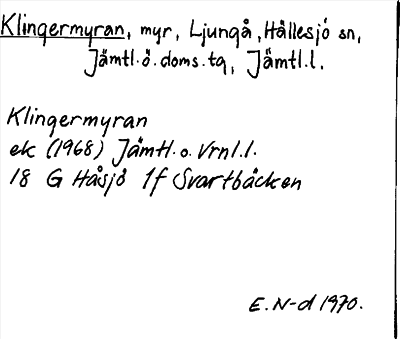 Klingermyran, myr, Ljungå, Hällesjö sn,
Jämtl.ö.doms.tg, Jämtl.l.
Klingermyran
ek (1968) Jämtl.o.Vrnl.l.
18 G Håsjö 1f Svartbäcken
E.N-d 1970.